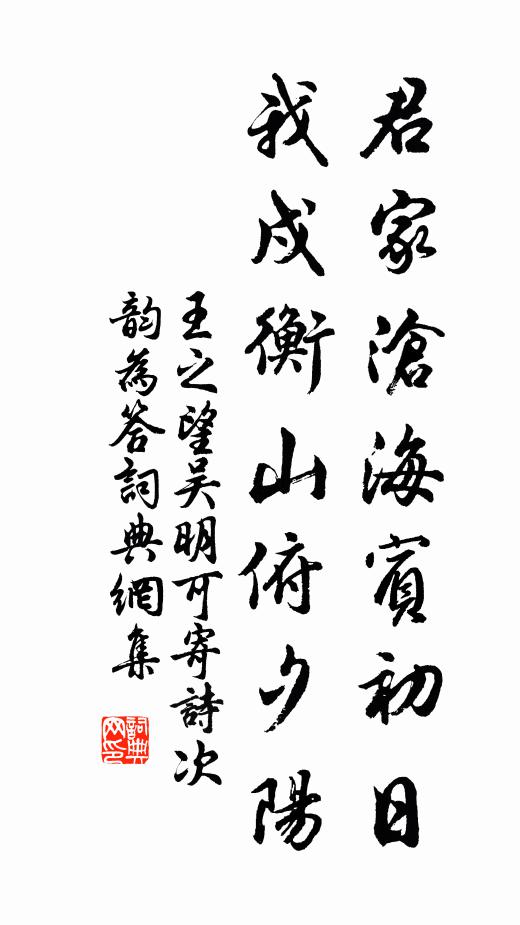 君家滄海賓初日
我戍衡山俯夕陽
王之望吳明可寄詩次
韵為答詞典網集
詞典網印